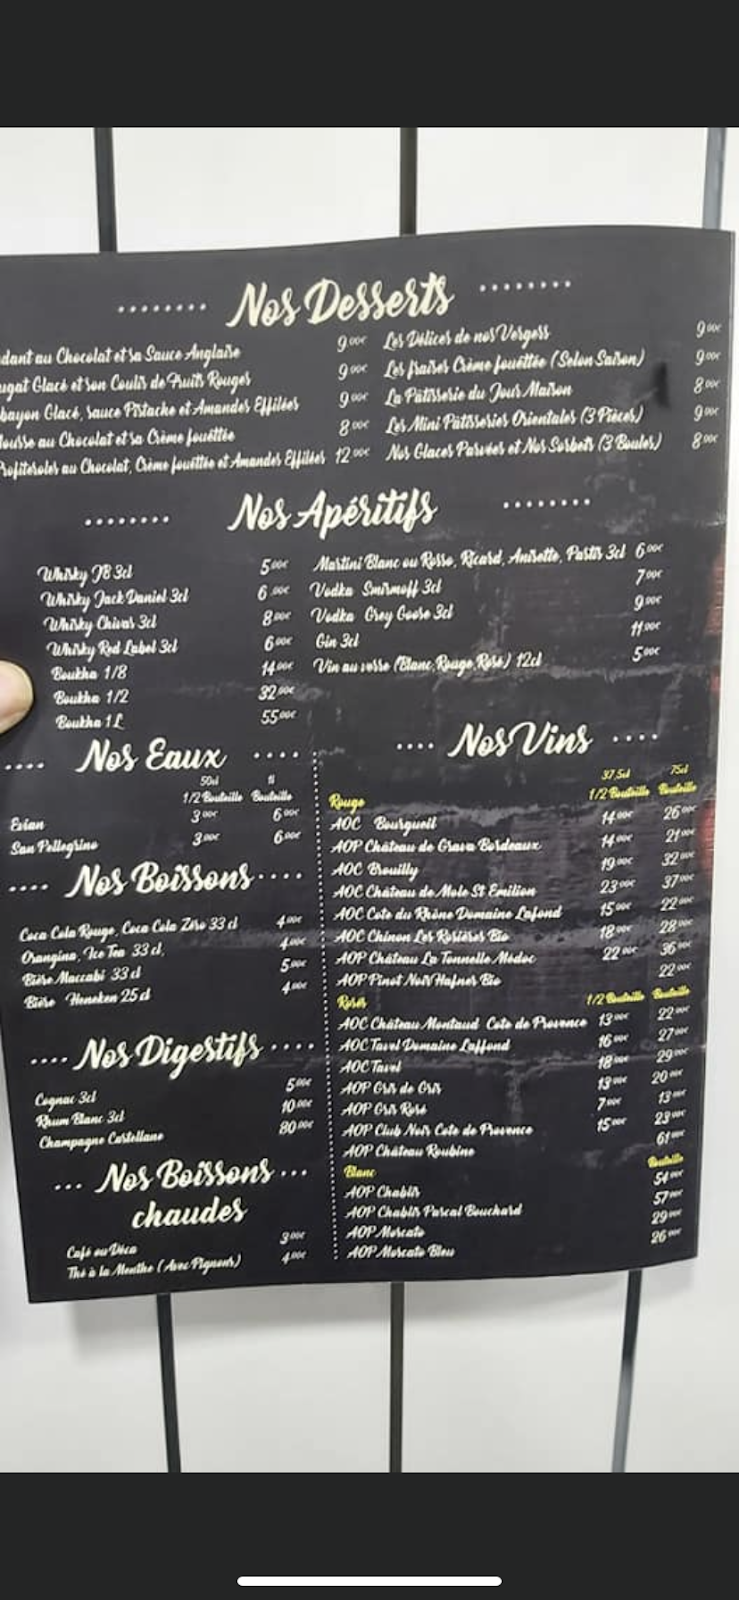 Nos Desserts
dant au Chocolat et sa Sauce Anglaise 9.00€
ugat Glacé et son Coulis de Fruits Rouges 9.00€
bayon Glacé, sauce Pistache et Amandes Effilées 9.00€
ousse au Chocolat et sa Crème fouettée 8.00€
rofiteroles au Chocolat, Crème fouettée et Amandes Effilées 12.00€
Les Délices de nos Vergers 9.00€
Les fraises Crème fouettée (Selon Saison) 9.00€
La Pâtisserie du Jour Maison 8.00€
Les Mini Pâtisseries Orientales (3 Pièces) 9.00€
Nos Glaces Parvées et Nos Sorbets (3 Boules) 8.00€
Nos Apéritifs
Whisky JB 3cl 5.00€
Whisky Jack Daniel 3cl 6.00€
Whisky Chivas 3cl 8.00€
Whisky Red Label 3cl 6.00€
Boukha 1/8 14.00€
Boukha 1/2 32.00€
Boukha 1L 55.00€
Martini Blanc ou Rosso, Ricard, Anisette, Pastis 3cl 6.00€
Vodka Smirnoff 3cl 7.00€
Vodka Grey Goose 3cl 9.00€
Gin 3cl 11.00€
Vin au verre (Blanc, Rouge, Rosé) 12cl 5.00€
Nos Eaux
50cl 1l
1/2 Bouteille Bouteille
Evian 3.00€ 6.00€
San Pellegrino 3.00€ 6.00€
Nos Boissons
Coca Cola Rouge, Coca Cola Zéro 33 cl 4.00€
Orangina, Ice Tea 33 cl, 4.00€
Bière Maccabi 33 cl 5.00€
Bière Heneken 25 cl 4.00€
Nos Digestifs
Cognac 3cl 5.00€
Rhum Blanc 3cl 10.00€
Champagne Castellane 80.00€
Nos Boissons
chaudes
Café ou Déca 3.00€
Thé à la Menthe (Avec Pignons) 4.00€
Nos Vins
37,5cl 75cl
Rouge 1/2 Bouteille Bouteille
AOC Bourgueil 14.00€ 26.00€
AOP Château de Grava Bordeaux 14.00€ 21.00€
AOC Brouilly 19.00€ 32.00€
AOC Château de Mole St Emilion 23.00€ 37.00€
AOC Cote du Rhône Domaine Lafond 15.00€ 22.00€
AOC Chinon Les Rosières Bio 18.00€ 28.00€
AOP Château La Tonnelle Médoc 22.00€ 36.00€
AOP Pinot Noir Hafner Bio 22.00€
Rosés 1/2 Bouteille Bouteille
AOC Château Montaud Cote de Provence 13.00€ 22.00€
AOC Tavel Domaine Laffond 16.00€ 27.00€
AOC Tavel 18.00€ 29.00€
AOP Gris de Gris 13.00€ 20.00€
AOP Gris Rosé 7.00€ 13.00€
AOP Club Noir Cote de Provence 15.00€ 23.00€
AOP Château Roubine 61.00€
Blanc Bouteille
AOP Chablis 54.00€
AOP Chablis Pascal Bouchard 57.00€
AOP Moscato 29.00€
AOP Moscato Bleu 26.00€